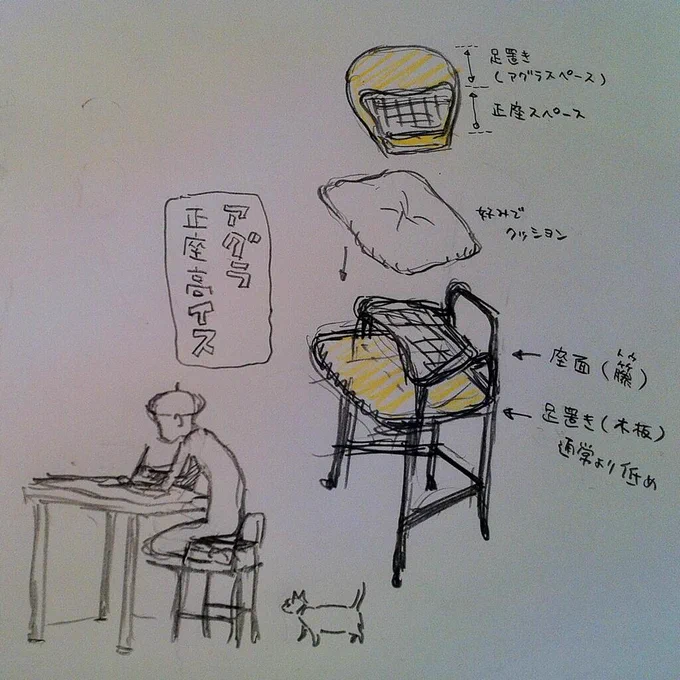 足置き
(アグラスペース)
正座スペース
好みで
クッション
アグラ
正座高イス
座面(籐)
トウ
足置き(木板)
通常より低め